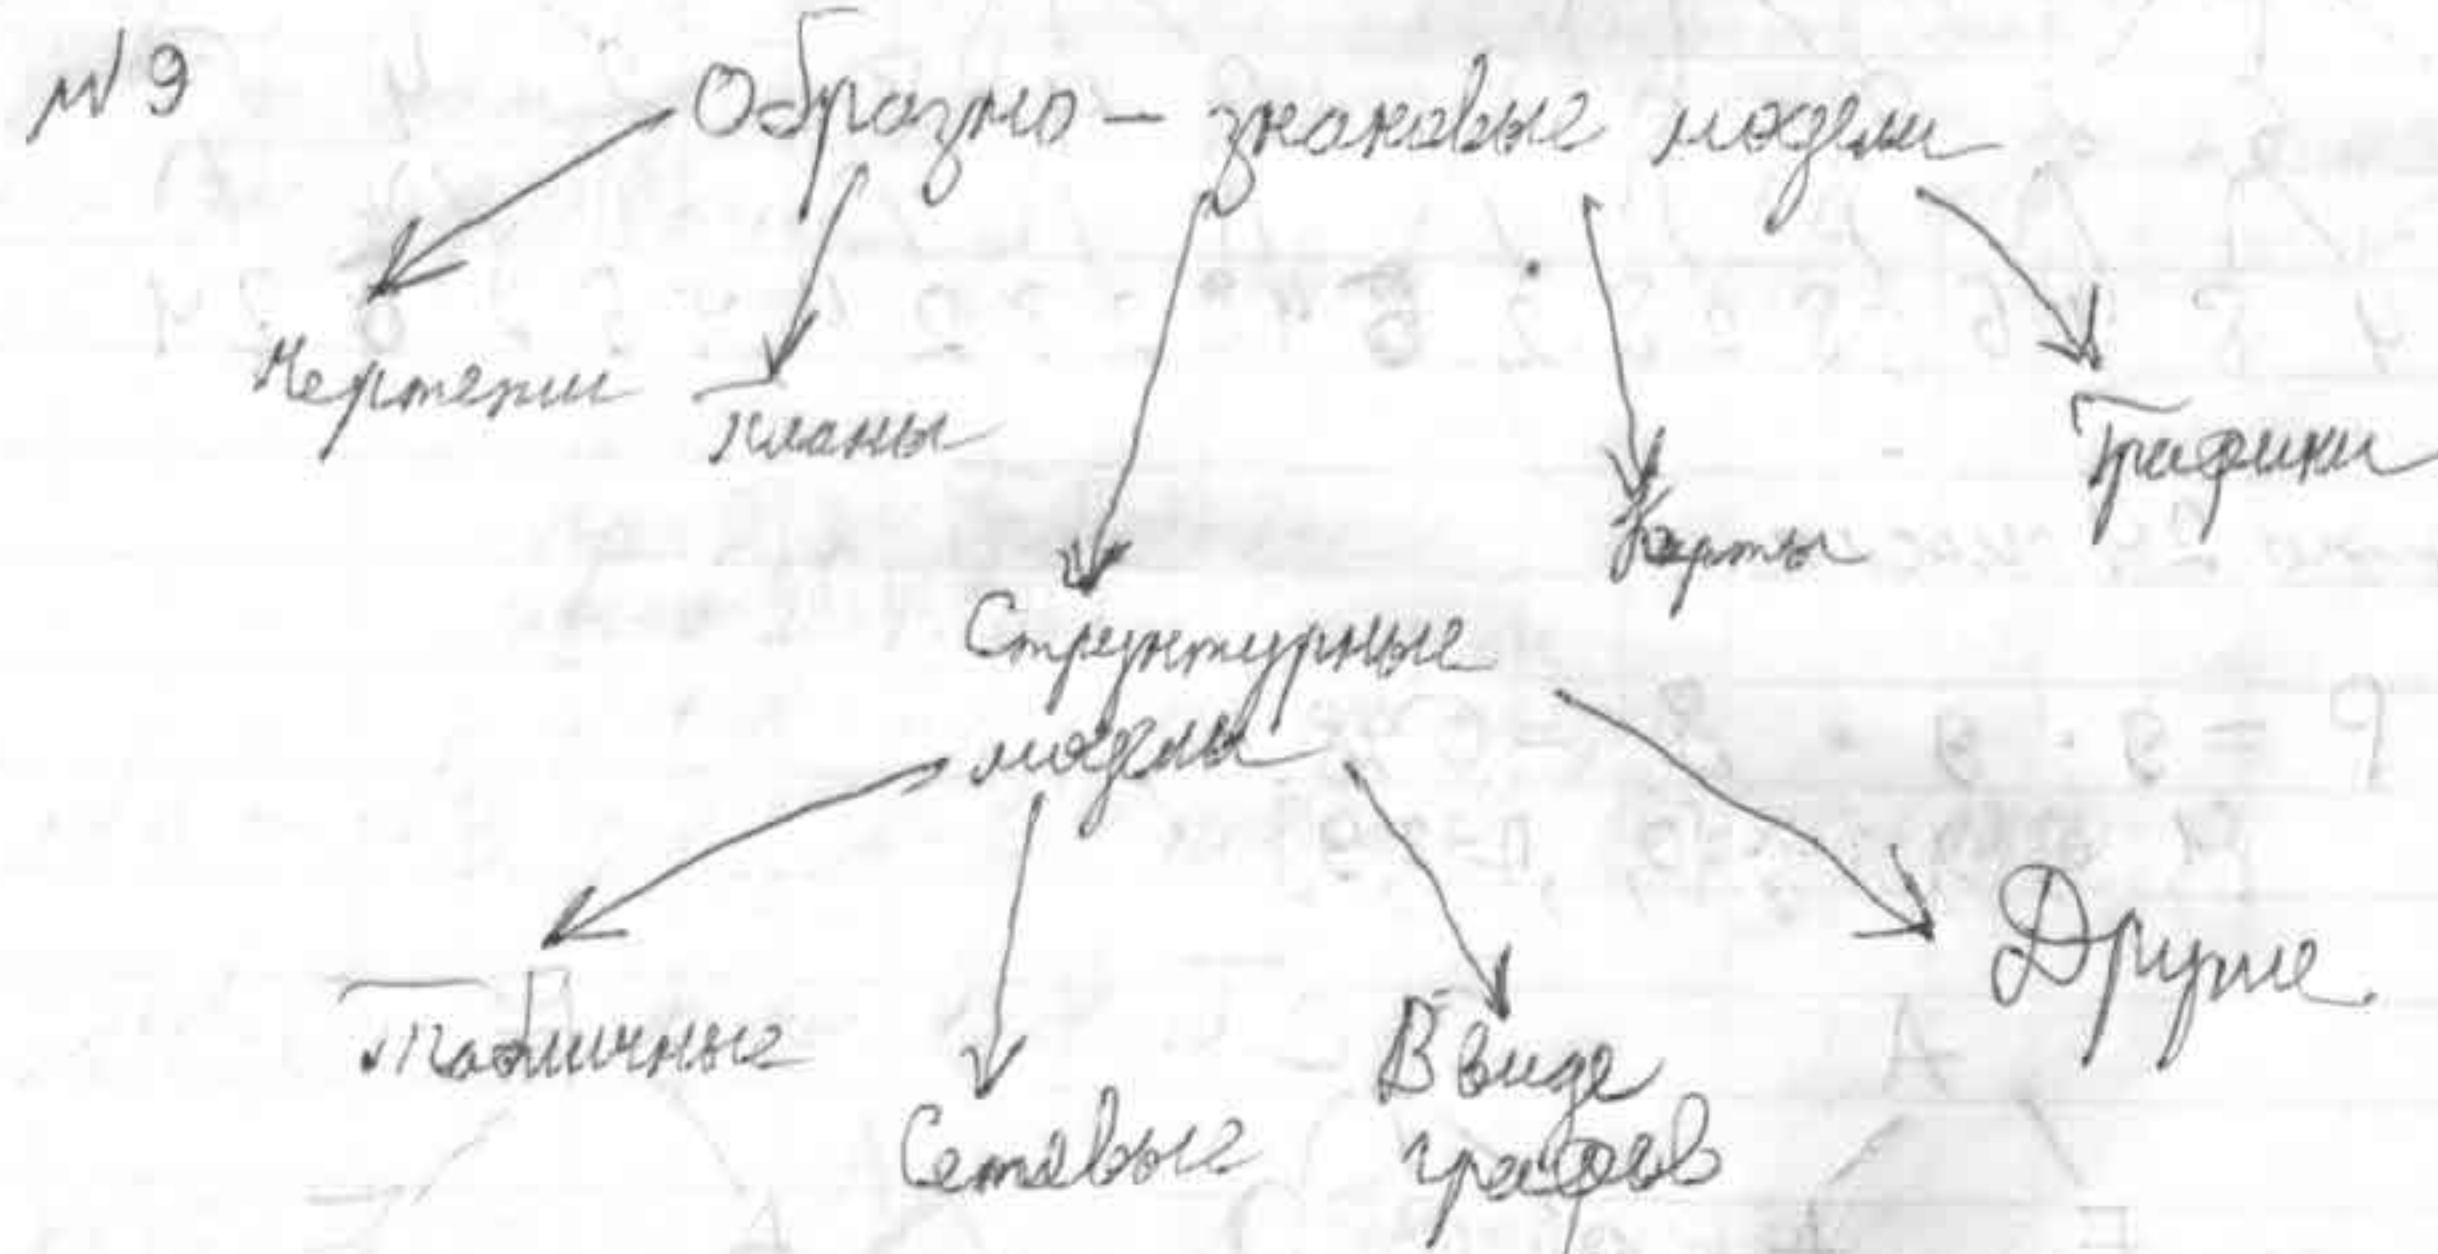 № 9
Образно – знаковые модели
Чертежи
Планы
Структурные
модели
Карты
Графики
Табличные
Сетевые
В виде
графов
Другие